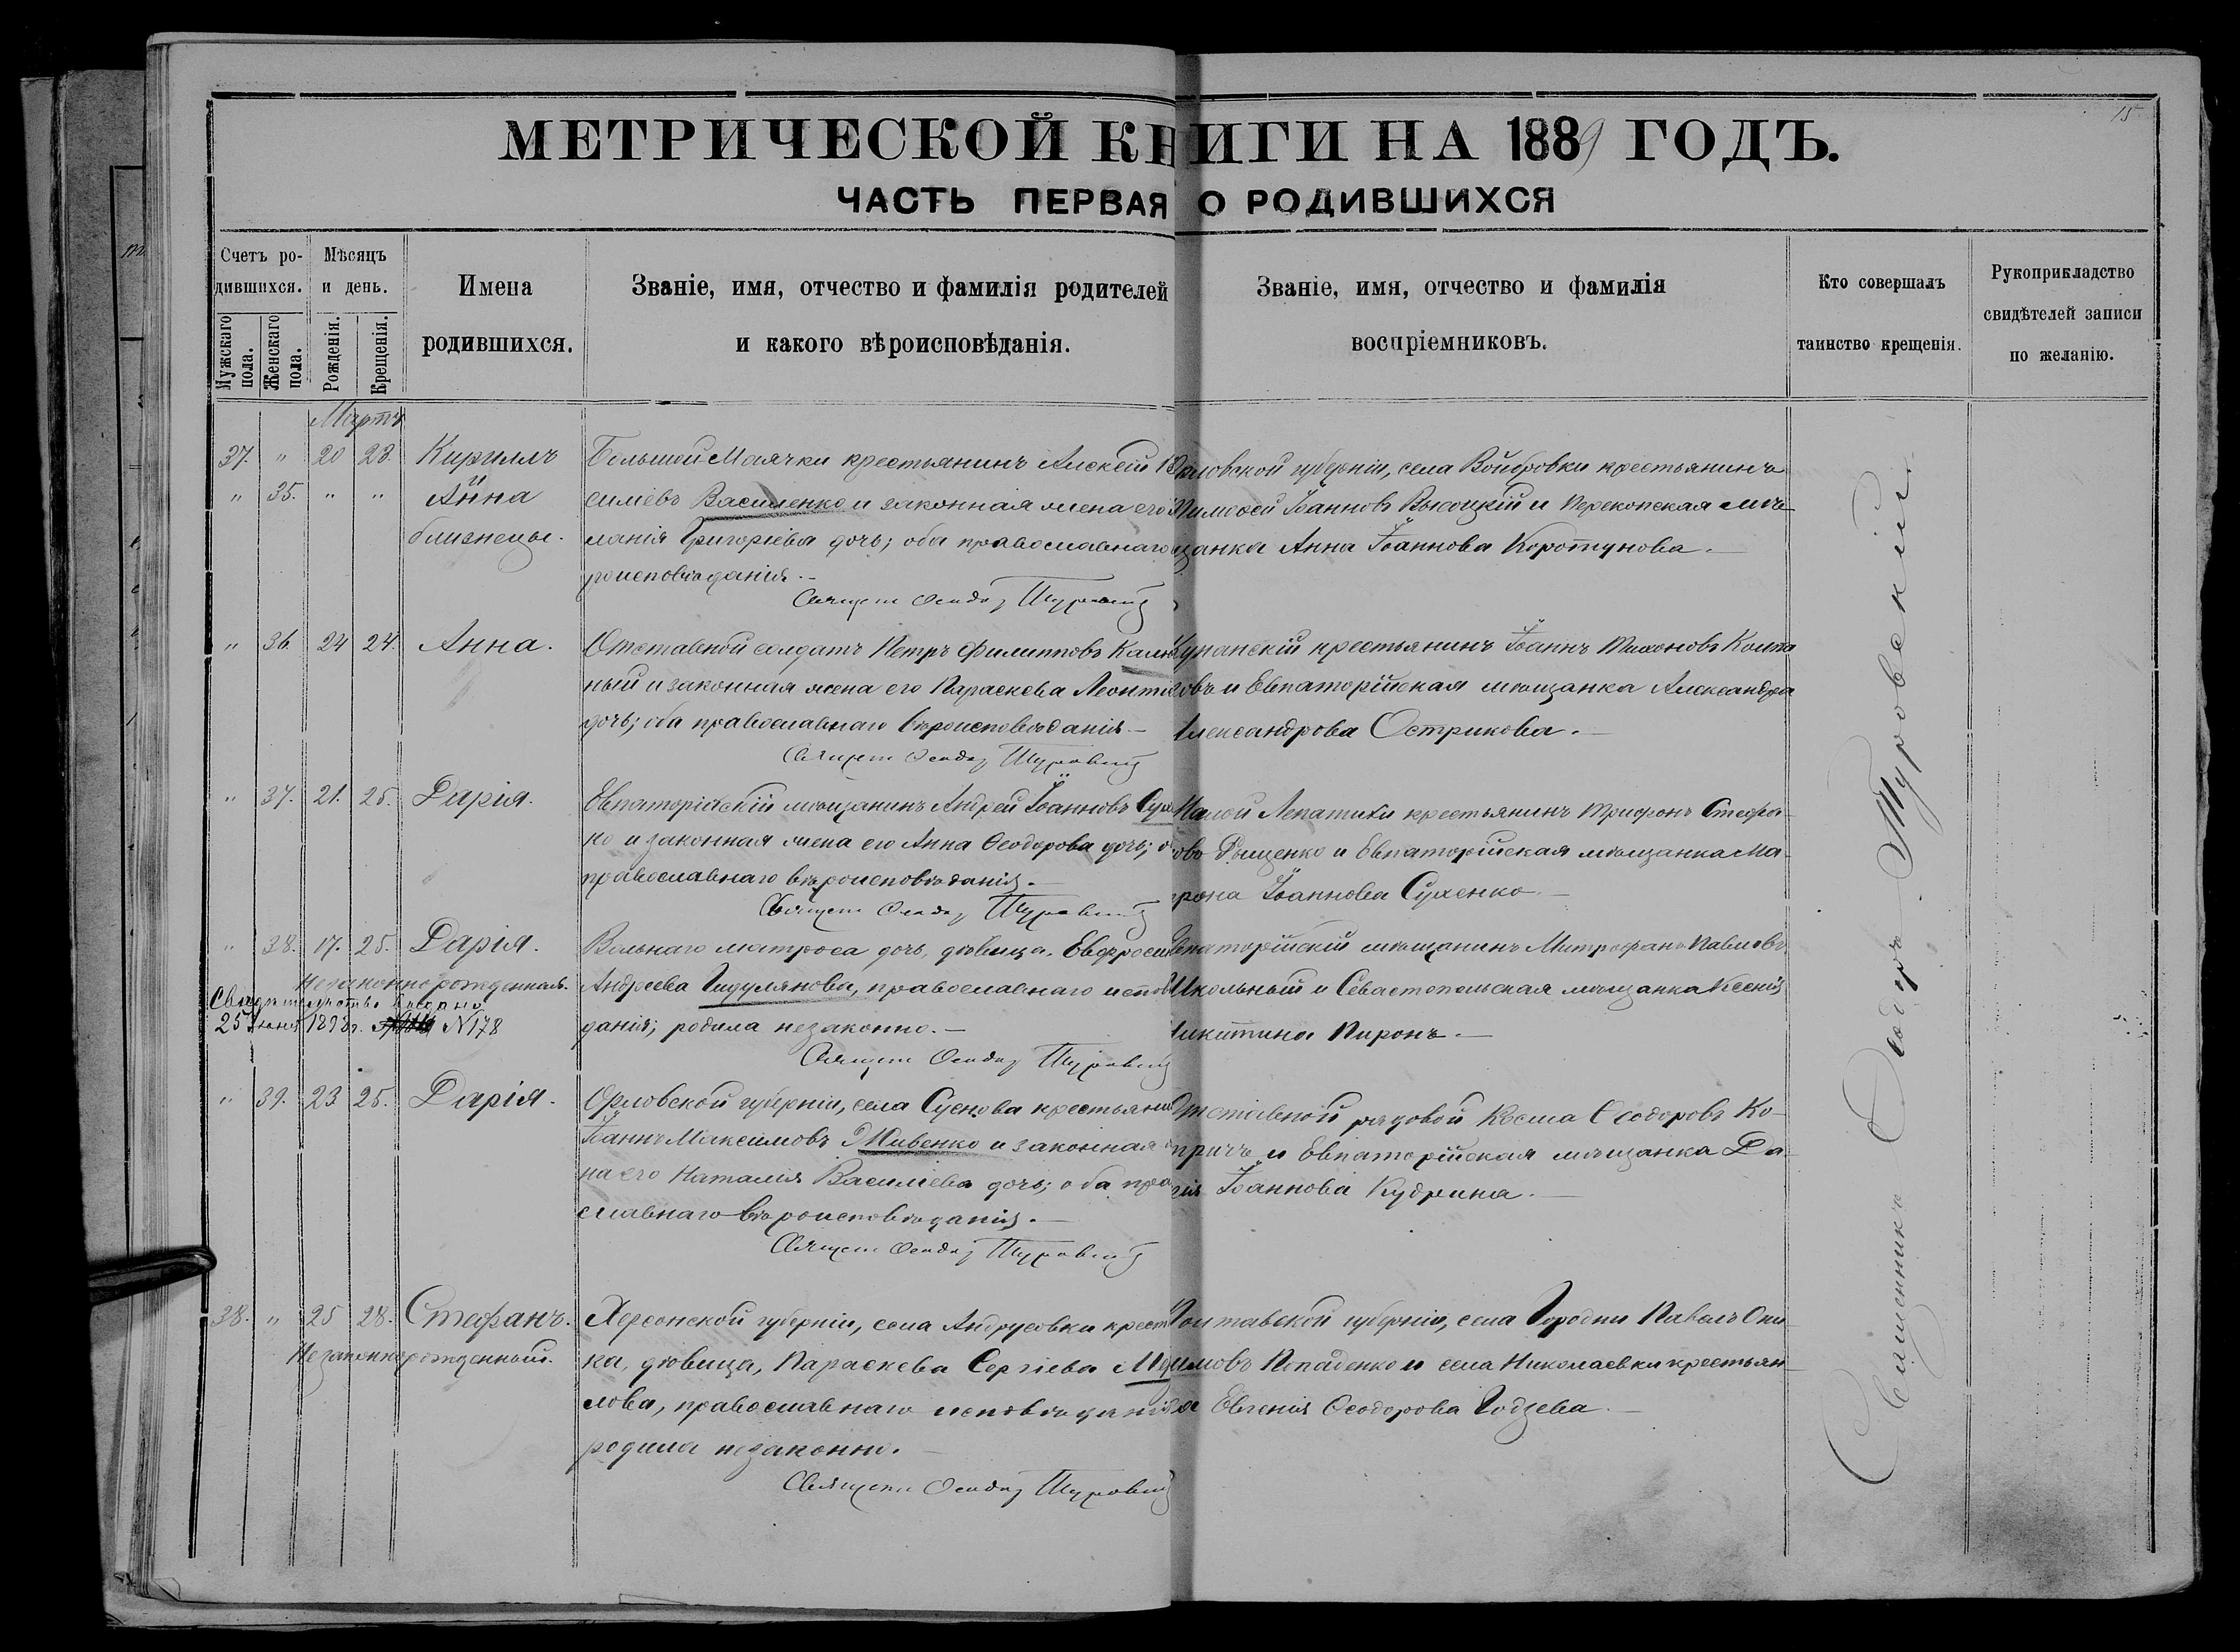 15
МЕТРИЧЕСКОЙ КНИГИ НА 1889 ГОДЪ.
ЧАСТЬ ПЕРВАЯ О РОДИВШИХСЯ
Счетъ ро-
дившихся.
Мужскаго пола.
Женскаго пола.
Мѣсяцъ
и день.
Рожденія.
Крещенія.
Имена
родившихся.
Званіе, имя, отчество и фамилія родителей
и какого вѣроисповѣданія.
Званіе, имя, отчество и фамилія
воспріемниковъ.
Кто совершалъ
таинство крещенія.
Рукоприкладство
свидѣтелей записи
по желанію.
Мартъ
37. " 20 23. Кириллъ
" 35. " " Анна
близнецы.
Большой Маячки крестьянинъ Алексѣй
силіевъ Василенко и законная жена его
ланія Григоріева дочь; оба православнаго
роисповѣданія.
Священ Ѳеодоръ Туровскій
рловской губерніи, села крестьянинъ
Тимоѳей Іоанновъ Высоцкій и Перекопская мѣ-
щанка Анна Іоаннова Коротунова.
" 36. 24 24. Анна.
Отставной солдатъ Петръ Филипповъ
ный и законная жена его Параскева
дочь; оба православнаго вѣроисповѣданія.
Священ Ѳеодоръ Туровскій
крестьянинъ Іоаннъ Тихоновъ
овъ и Евпаторійская мѣщанка Александра
Александрова Острикова.
" 37. 21. 25. Дарія.
Евпаторійскій мѣщанинъ Андрей Іоанновъ Сух
ко и законная жена его Анна Ѳеодорова дочь; о
православнаго вѣроисповѣданія.
Священ Ѳеодоръ Туровскій
Малой Лепатихи крестьянинъ Трифонъ Стефа-
новъ и Евпаторійская мѣщанка Ма-
трона Іоаннова Сухенко.
" 38. 17. 25. Дарія.
Незаконнорожденная.
Свидѣтельство выдано
25 1898 г. №178
Вольнаго матроса дочь, дѣвица, Евфроси
Андреева Гидулянова, православнаго исповѣ
данія; родила незаконно.
Священ Ѳеодоръ Туровскій
Евпаторійскій мѣщанинъ Митрофанъ Павловъ
Школьный и Севастопольская мѣщанка Ксенія
Никитина Пиронъ.
" 39. 23 25. Дарія.
Орловской губерніи, села крестьянин
Іоаннъ Максимовъ Живенко и законная
на его Наталія Василіева дочь; оба пра
славнаго вѣроисповѣданія.
Священ Ѳеодоръ Туровскій
Отставной рядовой Косма Ѳеодоровъ Ко-
причъ и Евпаторійская мѣщанка Да-
рія Іоаннова Кудрина.
38. " 25 28. Стефанъ.
Незаконнорожденный.
Херсонской губерніи, села Андрусовки крест
ка, дѣвица, Параскева Сергіева
лова, православнаго исповѣданія
родила незаконно.
Священ Ѳеодоръ Туровскій
Полтавской губерніи, села Городни Павелъ Они-
симовъ Попаденко и села Николаевки крестьян-
ка Евгенія Ѳеодорова Годзева.
Священникъ Ѳеодоръ Туровскій.